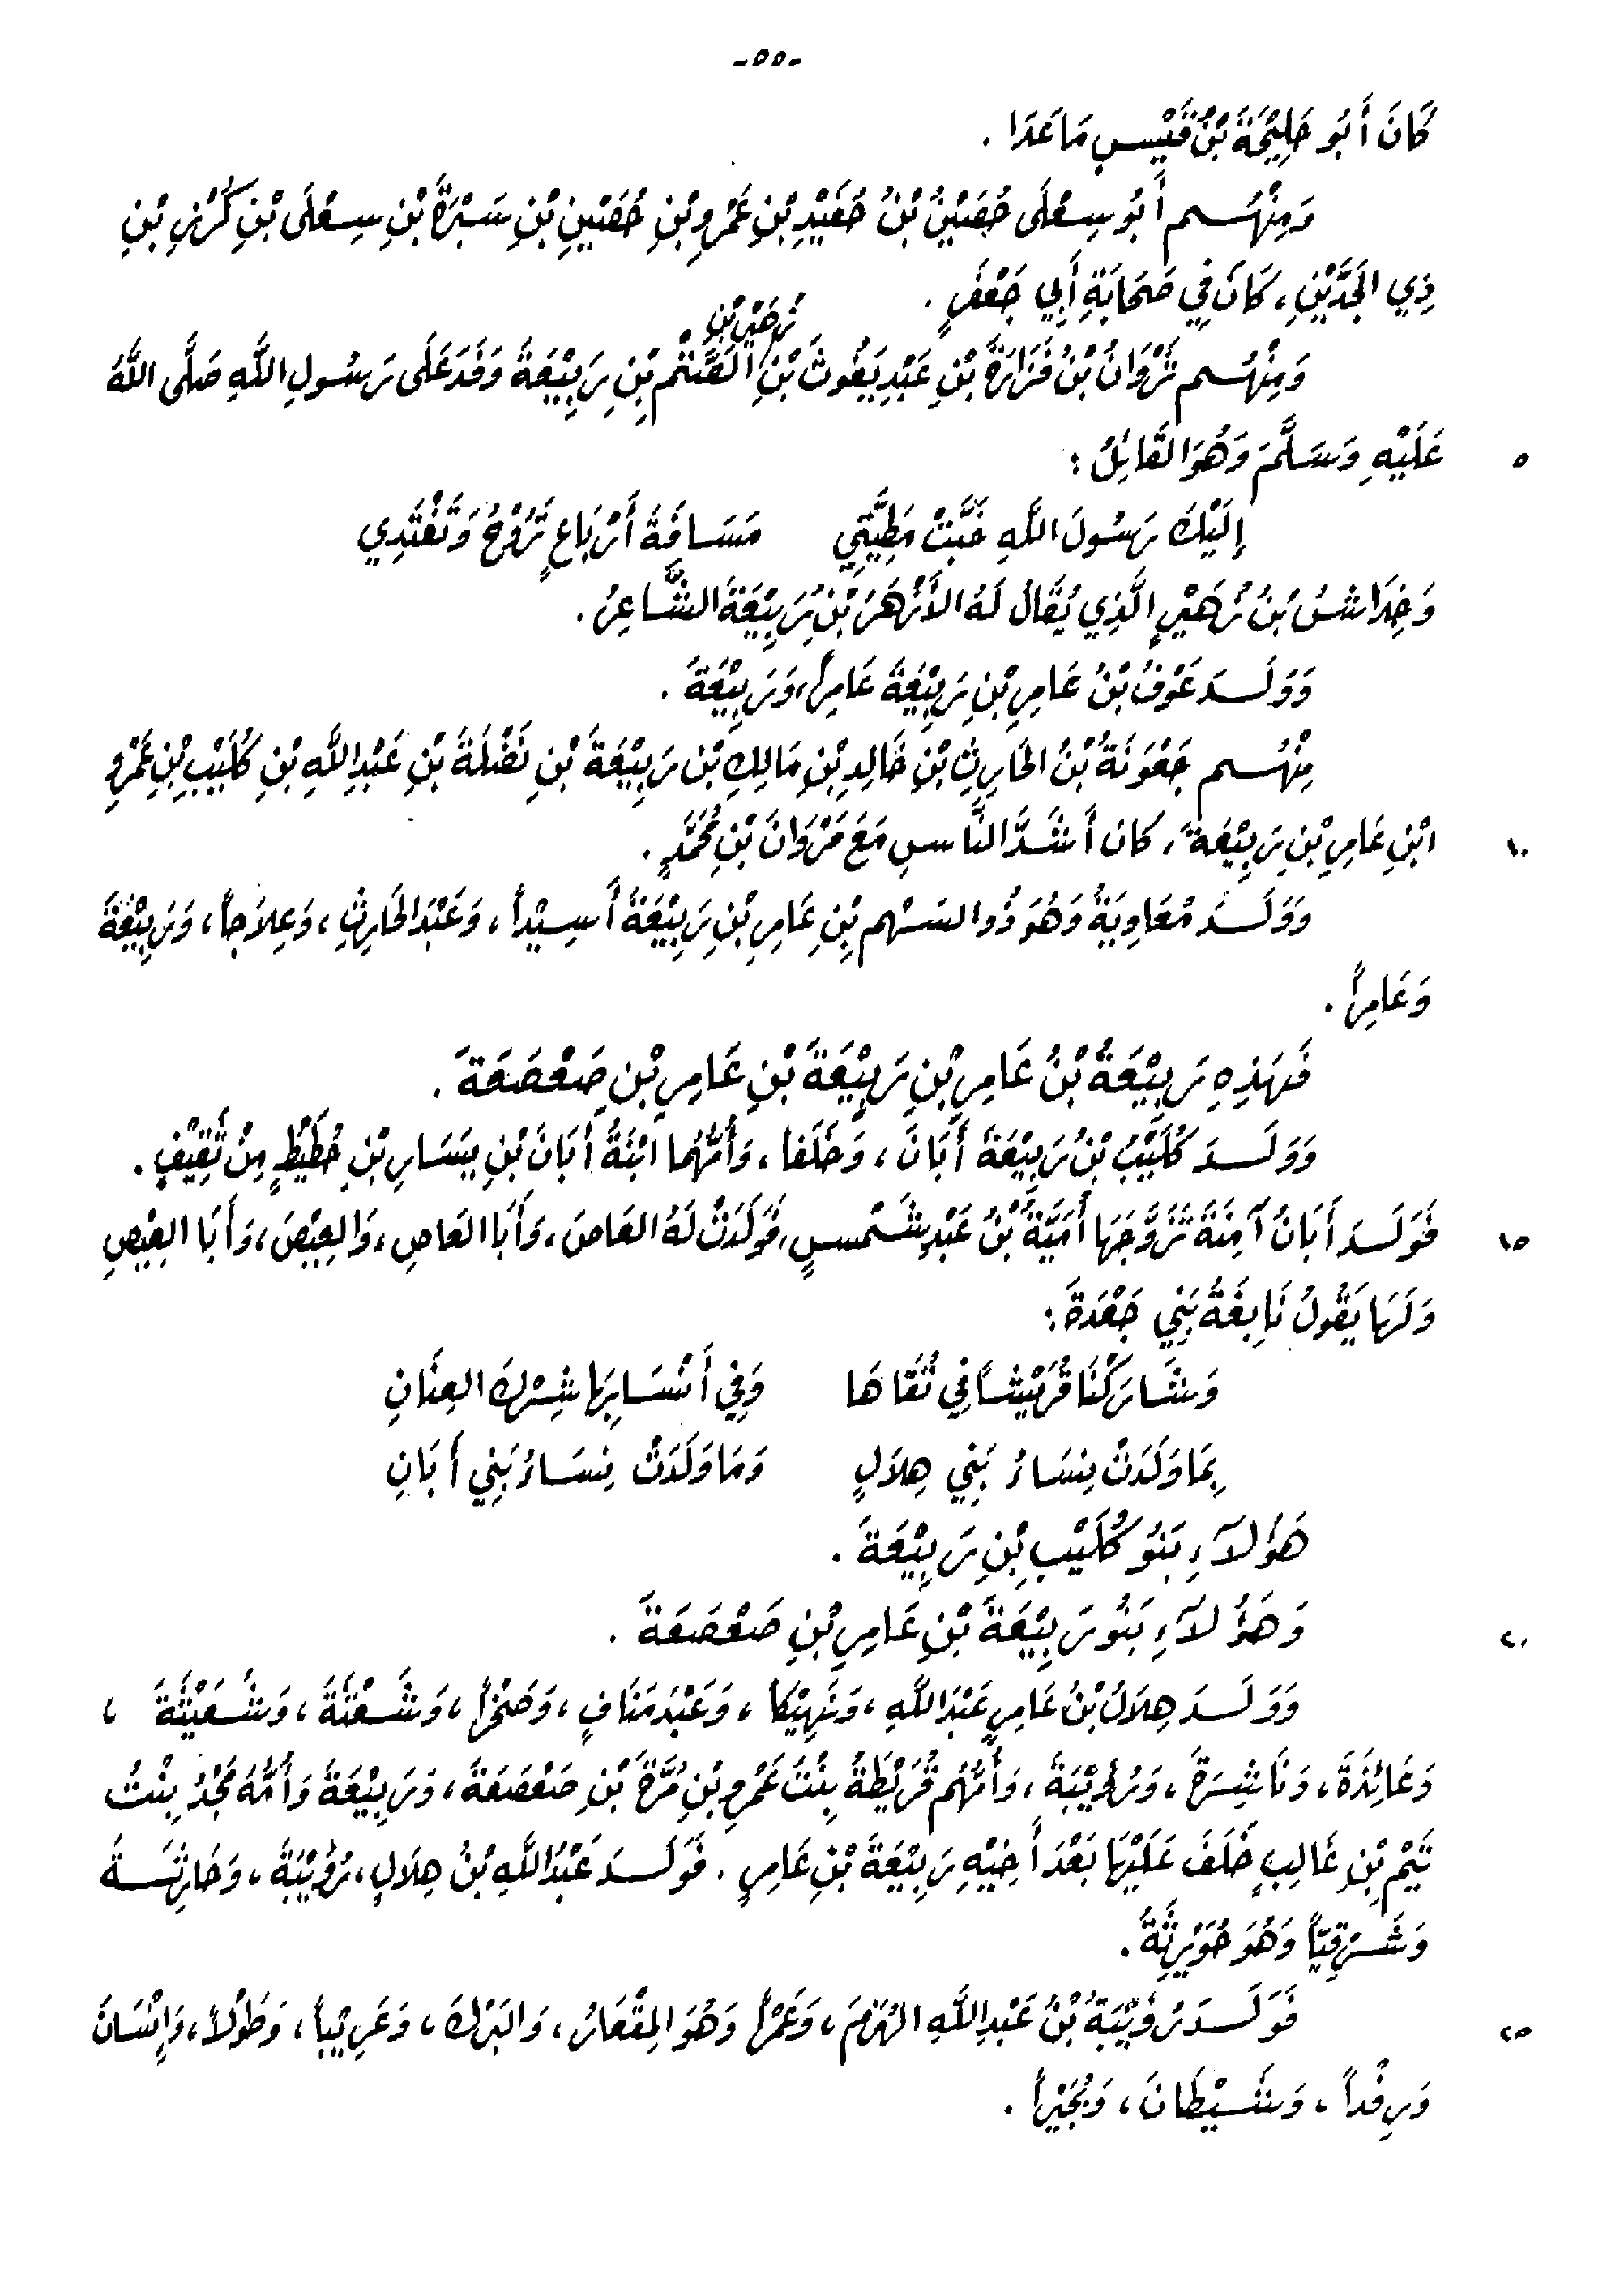 -٥٥-
كَانَ أَبُو حَلِيْحَةَ بْنُ قَيْسٍ مَا عَدَا .
وَمِنْهُم أَبُو سِعْلَى حُصَيْنُ بْنُ حُفَيْدِ بْنِ عَمْرِو بْنِ حُصَيْنِ بْنِ سَبْرَةَ بْنِ سِعْلَى بْنِ كُرْزِ بْنِ
ذِي الجَدَّيْنِ ، كَانَ فِي صَحَابَةِ أَبِي جَعْفَرٍ .
زُهَيْرِ بْنِ
وَمِنْهُم ثَرْوَانُ بْنُ فَزَارَةَ بْنِ عَبْدِ يَغُوثَ بْنِ الصَّتْمِ بْنِ رَبِيْعَةَ وَفَدَ عَلَى رَسُولِ اللَّهِ صَلَّى اللَّهُ
عَلَيْهِ وَسَلَّمَ وَهُوَ القَائِلُ : ٥
إِلَيْكَ رَسُولَ اللَّهِ خَبَّتْ مَطِيَّتِي مَسَافَةَ أَرْبَاعٍ تَرُوْحُ وَتَغْتَدِي
وَخِدَاشُ بْنُ زُهَيْرٍ الَّذِي يُقَالُ لَهُ الأَزْهَرُ بْنُ رَبِيْعَةَ الشَّاعِرُ .
وَوَلَدَ عَوْفُ بْنُ عَامِرِ بْنِ رَبِيْعَةَ عَامِراً، وَرَبِيْعَةَ .
مِنْهُم جَعْوَنَةُ بْنُ الحَارِثِ بْنِ خَالِدِ بْنِ مَالِكِ بْنِ رَبِيْعَةَ بْنِ نَضْلَةَ بْنِ عَبْدِ اللَّهِ بْنِ كُلَيْبِ بْنِ عَمْرِو
ابْنِ عَامِرِ بْنِ رَبِيْعَةَ ، كَانَ أَشَدَّ النَّاسِ مَعَ مَرْوَانَ بْنِ مُحَمَّدٍ . ١٠
وَوَلَدَ مُعَاوِيَةُ وَهُوَ ذُو السَّهْمِ بْنِ عَامِرِ بْنِ رَبِيْعَةَ أَسِيْداً ، وَعَبْدَ الحَارِثِ ، وَعِلاَجاً ، وَرَبِيْعَةَ
وَعَامِراً .
فَهَذِهِ رَبِيْعَةُ بْنُ عَامِرِ بْنِ رَبِيْعَةَ بْنِ عَامِرِ بْنِ صَعْصَعَةَ .
وَوَلَدَ كُلَيْبُ بْنُ رَبِيْعَةَ أَبَانَ ، وَخَلَفاً ، وَأُمُّهُمَا ابْنَةُ أَبَانَ بْنِ يَسَارِ بْنِ حُطَيْطٍ مِنْ ثَقِيْفٍ .
فَوَلَدَ أَبَانُ آمِنَةَ تَزَوَّجَهَا أُمَيَّةُ بْنُ عَبْدِ شَمْسٍ ، فَوَلَدَتْ لَهُ العَاصَ ، وَأَبَا العَاصِ ، وَالعِيْصَ ، وَأَبَا العِيْصِ ١٥
وَلَهَا يَقُولُ نَابِغَةُ بَنِي جَعْدَةَ :
وَشَارَكْنَا قُرَيْشاً فِي تُقَاهَا وَفِي أَنْسَابِهَا شِرْكَ العِنَانِ
بِمَا وَلَدَتْ نِسَاءُ بَنِي هِلاَلٍ وَمَا وَلَدَتْ نِسَاءُ بَنِي أَبَانِ
هَؤُلاَءِ بَنُو كُلَيْبِ بْنِ رَبِيْعَةَ .
وَهَؤُلاَءِ بَنُو رَبِيْعَةَ بْنِ عَامِرِ بْنِ صَعْصَعَةَ . ٢٠
وَوَلَدَ هِلاَلُ بْنُ عَامِرٍ عَبْدَ اللَّهِ ، وَنَهِيْكاً ، وَعَبْدَ مَنَافٍ ، وَصَخْراً ، وَشَعْثَةَ ، وَشُعَيْثَةَ ،
وَعَائِذَةَ ، وَنَاشِرَةَ ، وَرُوَيْبَةَ ، وَأُمُّهُم قُرَيْظَةُ بِنْتُ عَمْرِو بْنِ مُرَّةَ بْنِ صَعْصَعَةَ ، وَرَبِيْعَةَ وَأُمُّهُ مَجْدُ بِنْتُ
تَيْمِ بْنِ غَالِبٍ خَلَفَ عَلَيْهَا بَعْدَ أَخِيْهِ رَبِيْعَةَ بْنِ عَامِرٍ . فَوَلَدَ عَبْدُ اللَّهِ بْنُ هِلاَلٍ ، رُؤَيْبَةَ ، وَحَارِثَةَ
وَشَرْقِيّاً وَهُوَ حُوَيْرِثَةُ .
فَوَلَدَ رُؤَيْبَةُ بْنُ عَبْدِ اللَّهِ الهُزَمَ ، وَعَمْراً وَهُوَ المِقْعَارُ ، وَالبَرْكَ ، وَعَرِيْباً ، وَطَوْلاً ، وَإِنْسَانَ ٢٥
وَرِفْداً ، وَشَيْطَانَ ، وَبُجَيْراً .